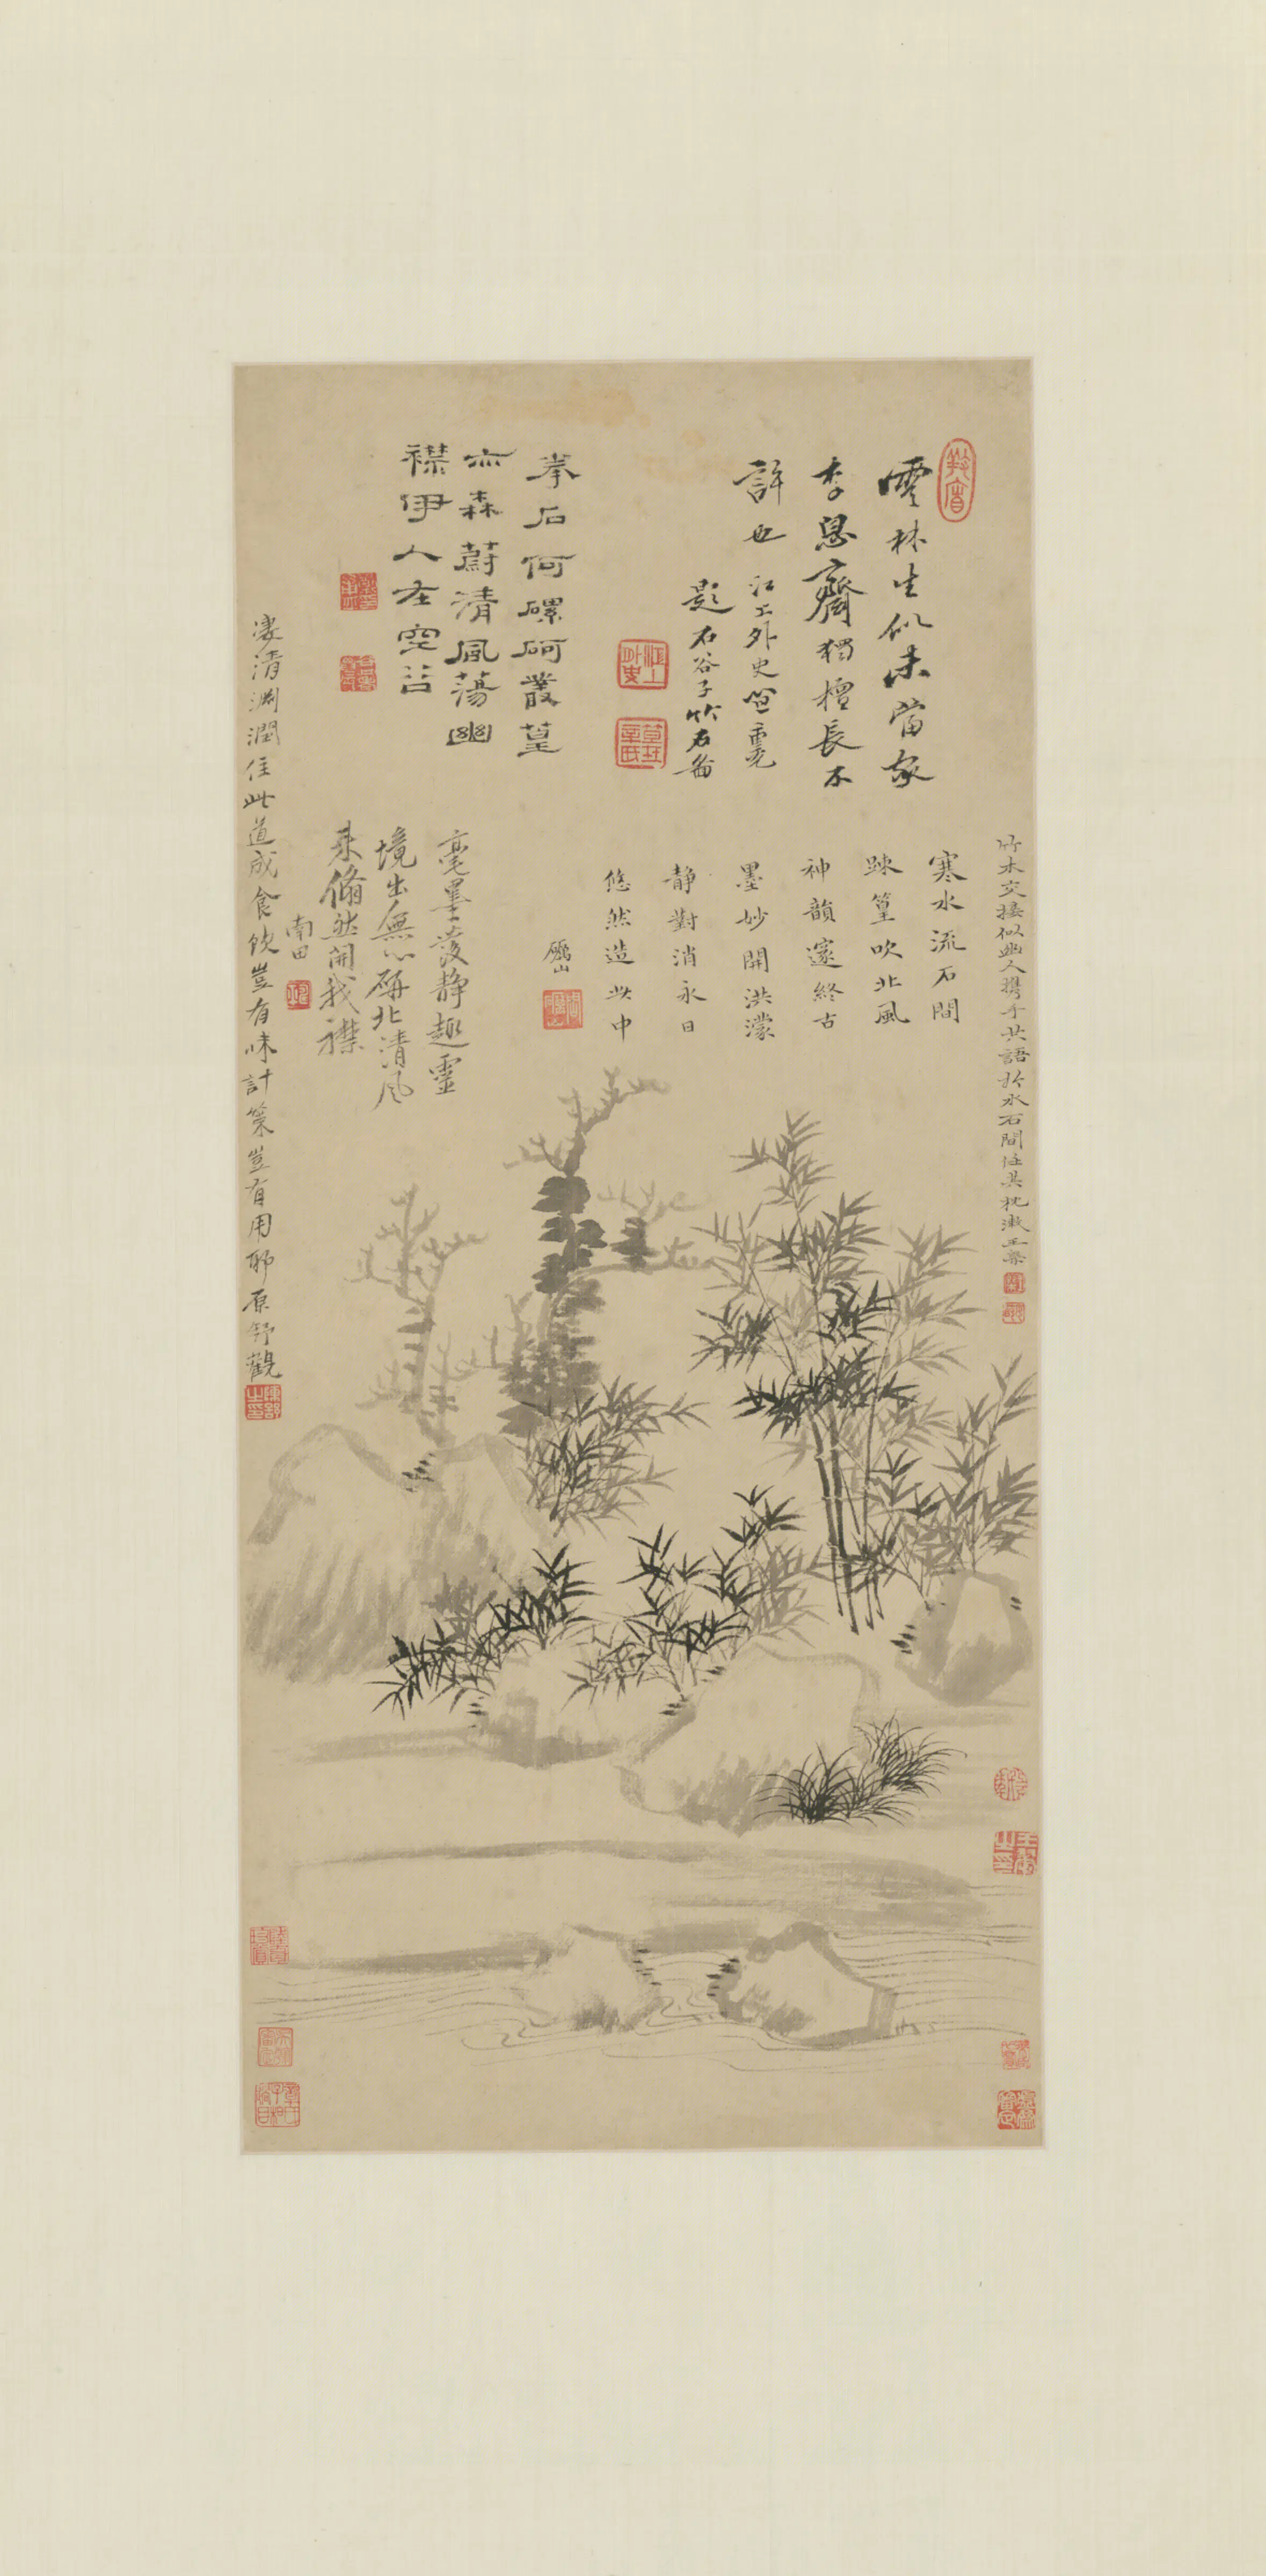 雲林生似未當家
李息齋獨擅長不
許也 江上外史笪重光
題石谷子竹石图
拳石何磥砢叢篁
亦森蔚清風蕩幽
襟伊人在空谷
竹木交接似幽人攜手共語於水石間任其枕漱王槩
寒水流石間
踈篁吹北風
神韻邃終古
墨妙開洪濛
静對消永日
悠然造此中
毫墨發静趣靈
境出無心研北清風
来翛然開我襟
南田
淒清淵潤住此道成食飲豈有味計策豈有用耶原舒觀
江上外史